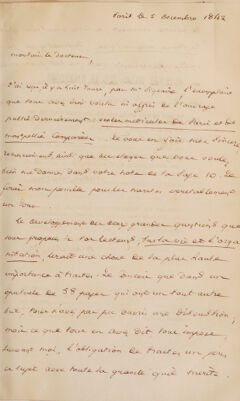 Paris le 5 décembre 1842
monsieur le docteur,
J'ai reçu il y a huit jours, par Mr l'exemplaire
que vous avez bien voulu m' de l'ouvrage
publié Paris et de
Montpellier comparées. Je vous en fais mes sincères
remerciments, ainsi que des éloges que vous voulez
bien me donner dans votre note de la page 10. Je
ferai mon possible pour les mériter véritablement
un jour.
Le développement des deux grandes questions que
vous proposez sur la vie et l'orga
nisation serait une chose de la plus haute
importance à traiter. Je conçois que dans un
opuscule de 58 pages qui avait un tout autre
but, vous n'avez pas pu ouvrir une discussion;
mais ce que vous en avez dit vous impose,
suivant moi, l'obligation de traiter un jour
ce sujet avec toute la grandeur qu'il mérite.